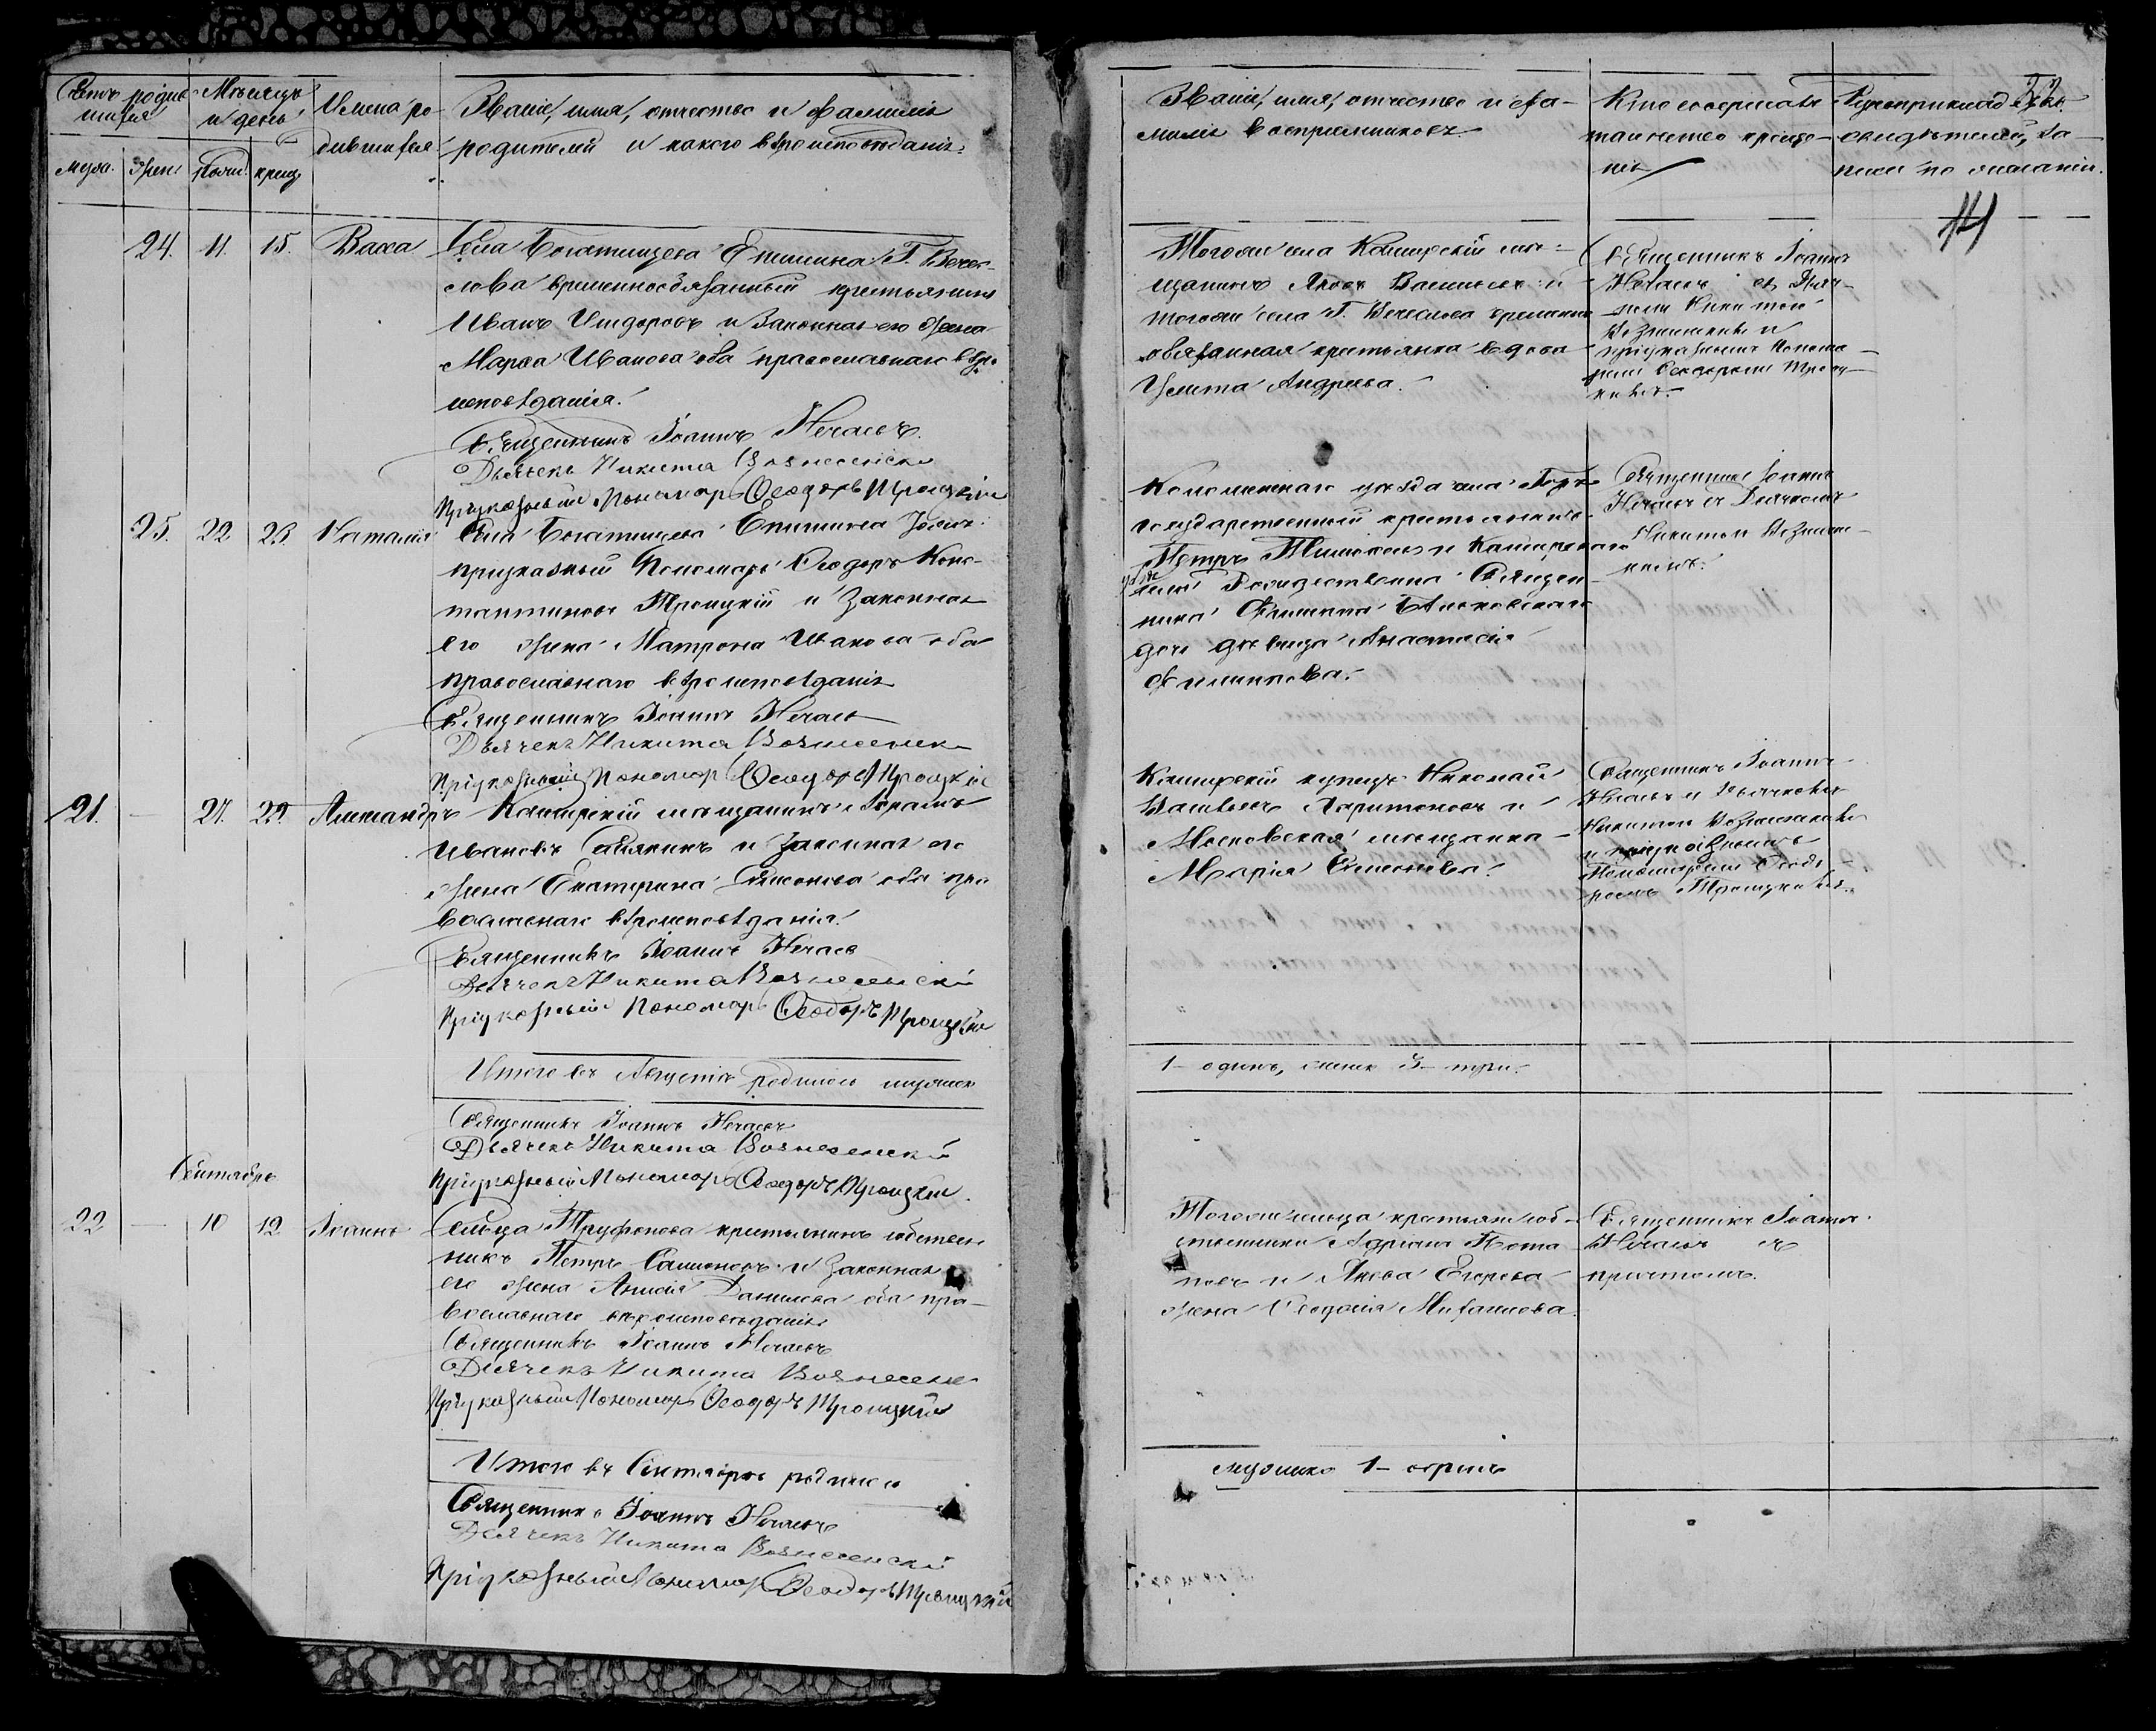 Счетъ родив-
шихся
Мѣсяцъ
и день
Имена ро-
дившихся.
Званіе, имя, отчество и фамилія
родителей и какого вѣроисповѣданія.
муж. жен. рожд. крещ.
24. 11. 15. Васса
Села Богатищева Епишина Г. Вечес-
лова временнообязанный крестьянинъ
Иванъ Исидоровъ и законная его жена
Марѳа Иванова оба православнаго вѣро
исповѣданія.
Священникъ Іоаннъ Нечаевъ.
Дьячекъ Никита Вознесенскі
Приуказный Пономарь Ѳеодоръ Троицкій
25. 22 23. Наталія
Села Богатищева Епишина
приуказный Пономарь Ѳеодоръ Конс-
тантиновъ Троицкій и законная
его жена Матрона Иванова оба
православнаго вѣроисповѣданія
Священникъ Іоаннъ Нечаев
Дьячекъ Никита Вознесенск
Приуказный Пономарь Ѳеодоръ Троицкій
21. — 27. 29. Александръ
Каширскій мѣщанинъ Абрамъ
Ивановъ и законная его
жена Екатерина Симонова оба пра
вославнаго вѣроисповѣданія.
Священникъ Іоаннъ Нечаев
Дьячекъ Никита Вознесенскі
Приуказный Пономарь Ѳеодоръ Троицкій
Итого въ Августѣ родилось мужеск
Священникъ Іоаннъ Нечаевъ
Дьячекъ Никита Вознесенскі
Приуказный Пономарь Ѳеодоръ Троицкій.
Сентябрь
22 — 10 12 Іоаннъ
Сельца Труфонова крестьянинъ собствен
никъ Петръ Самсоновъ и законная
его жена Анисія Данилова оба пра-
вославнаго вѣроисповѣданія
Священникъ Іоаннъ Нечаевъ
Дьячекъ Никита Вознесенс
Приуказный Пономарь Ѳеодоръ Троицкій
Итого въ Сентябрѣ родилось
Священникъ Іоаннъ Нечаевъ
Дьячекъ Никита Вознесенскій
Приуказный Пономарь Ѳеодоръ Троицкій
Званіе, имя, отчество и фа-
милія воспріемниковъ
Кто совершалъ
таинство креще-
нія
Рукоприкладство
свидѣтелей, за
писи по желанію.
Тогоже села Каширскій мѣ-
щанинъ Яковъ Васильевъ и
тогоже села Г. Вечеслова временно
обязанная крестьянка вдова
Улита Андреева.
Священникъ Іоаннъ
Нечаевъ съ Дьяч-
комъ Никитой
Вознесенск и
приуказнымъ Понома-
ремъ Ѳеодоромъ Троиц-
кимъ.
Коломенскаго уѣзда села
государственный крестьянинъ
Петръ и Каширскаго
уѣзда
села Рождествина Священ-
ника Филиппа
дочь дѣвица Анастасія
Филиппова.
Священникъ Іоаннъ
Нечаевъ съ Дьячкомъ
Никитой Вознесен-
скимъ.
Каширскій купецъ Николай
Васильевъ Харитоновъ и
Московская мѣщанка
Марія Симонова.
Священникъ Іоаннъ
Нечаевъ и Дьячковъ
Никитой Вознесенскі
и приуказнымъ
Пономаремъ Ѳеодо-
ромъ Троицкимъ.
1 — одинъ, женск 3 — три.
Тогоже сельца крестьян соб-
ственники Адріанъ Пота
повъ и Якова Егорова
жена Ѳеодосія Михайлова.
Священникъ Іоаннъ
Нечаевъ съ
причтомъ.
мужеско 1 — одинъ